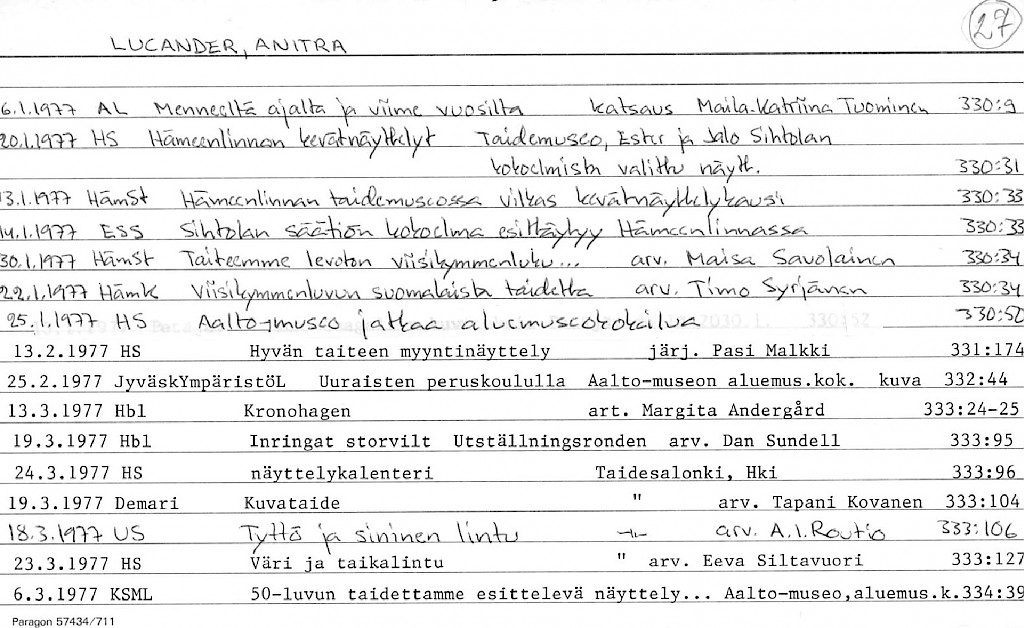 27
LUCANDER, ANITRA
6.1.1977 AL Menneeltä ajalta ja viime vuosilta katsaus Maila-Katriina Tuominen 330:9
20.1.1977 HS Hämeenlinnan kevätnäyttelyt Taidemuseo, Ester ja Jalo Sihtolan
kokoelmista valittu näytt. 330:31
13.1.1977 HämSt Hämeenlinnan taidemuseossa vilkas kevätnäyttelykausi 330:33
14.1.1977 ESS Sihtolan säätiön kokoelma esittäytyy Hämeenlinnassa 330:33
30.1.1977 HämSt Taiteemme levoton viisikymmenluku... arv. Maisa Savolainen 330:34
22.1.1977 HämK Viisikymmenluvun suomalaista taidetta arv. Timo Syrjänen 330:34
25.1.1977 HS Aalto-museo jatkaa aluemuseokokeilua 330:52
13.2.1977 HS Hyvän taiteen myyntinäyttely järj. Pasi Malkki 331:174
25.2.1977 JyväskYmpäristöL Uuraisten peruskoululla Aalto-museon aluemus.kok. kuva 332:44
13.3.1977 Hbl Kronohagen art. Margita Andergård 333:24-25
19.3.1977 Hbl Inringat storvilt Utställningsronden arv. Dan Sundell 333:95
24.3.1977 HS näyttelykalenteri Taidesalonki, Hki 333:96
19.3.1977 Demari Kuvataide " arv. Tapani Kovanen 333:104
18.3.1977 US Tyttö ja sininen lintu -"- arv. A.I.Routio 333:106
23.3.1977 HS Väri ja taikalintu " arv. Eeva Siltavuori 333:127
6.3.1977 KSML 50-luvun taidettamme esittelevä näyttely... Aalto-museo,aluemus.k.334:39
Paragon 57434/711